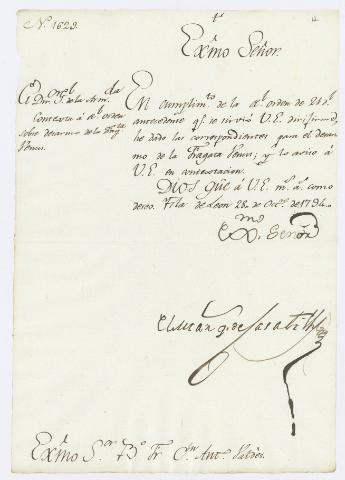 Nº. 1629.
Exmo Señor.
El Dirr. Gral. de la Armda
Contexta á Rl. orden
sobre desarmo de la Fragta
Venus.
En cumplimto. de la Rl. orden de 21 del
antecedente qe. se sirvió V.E. dirixirme,
he dado las correspondientes para el desar-
mo de la Fragata Venus; y lo aviso á
V.E. en contextacion.
Dios gũe á V.E. ms. as. como
deseo. Ysla de Leon 28. de Octe. de 1794.
Exmo. Señor
El Marqs. de
Exmo Sor. Bo. Fr. Dn. Anto. Valdés.